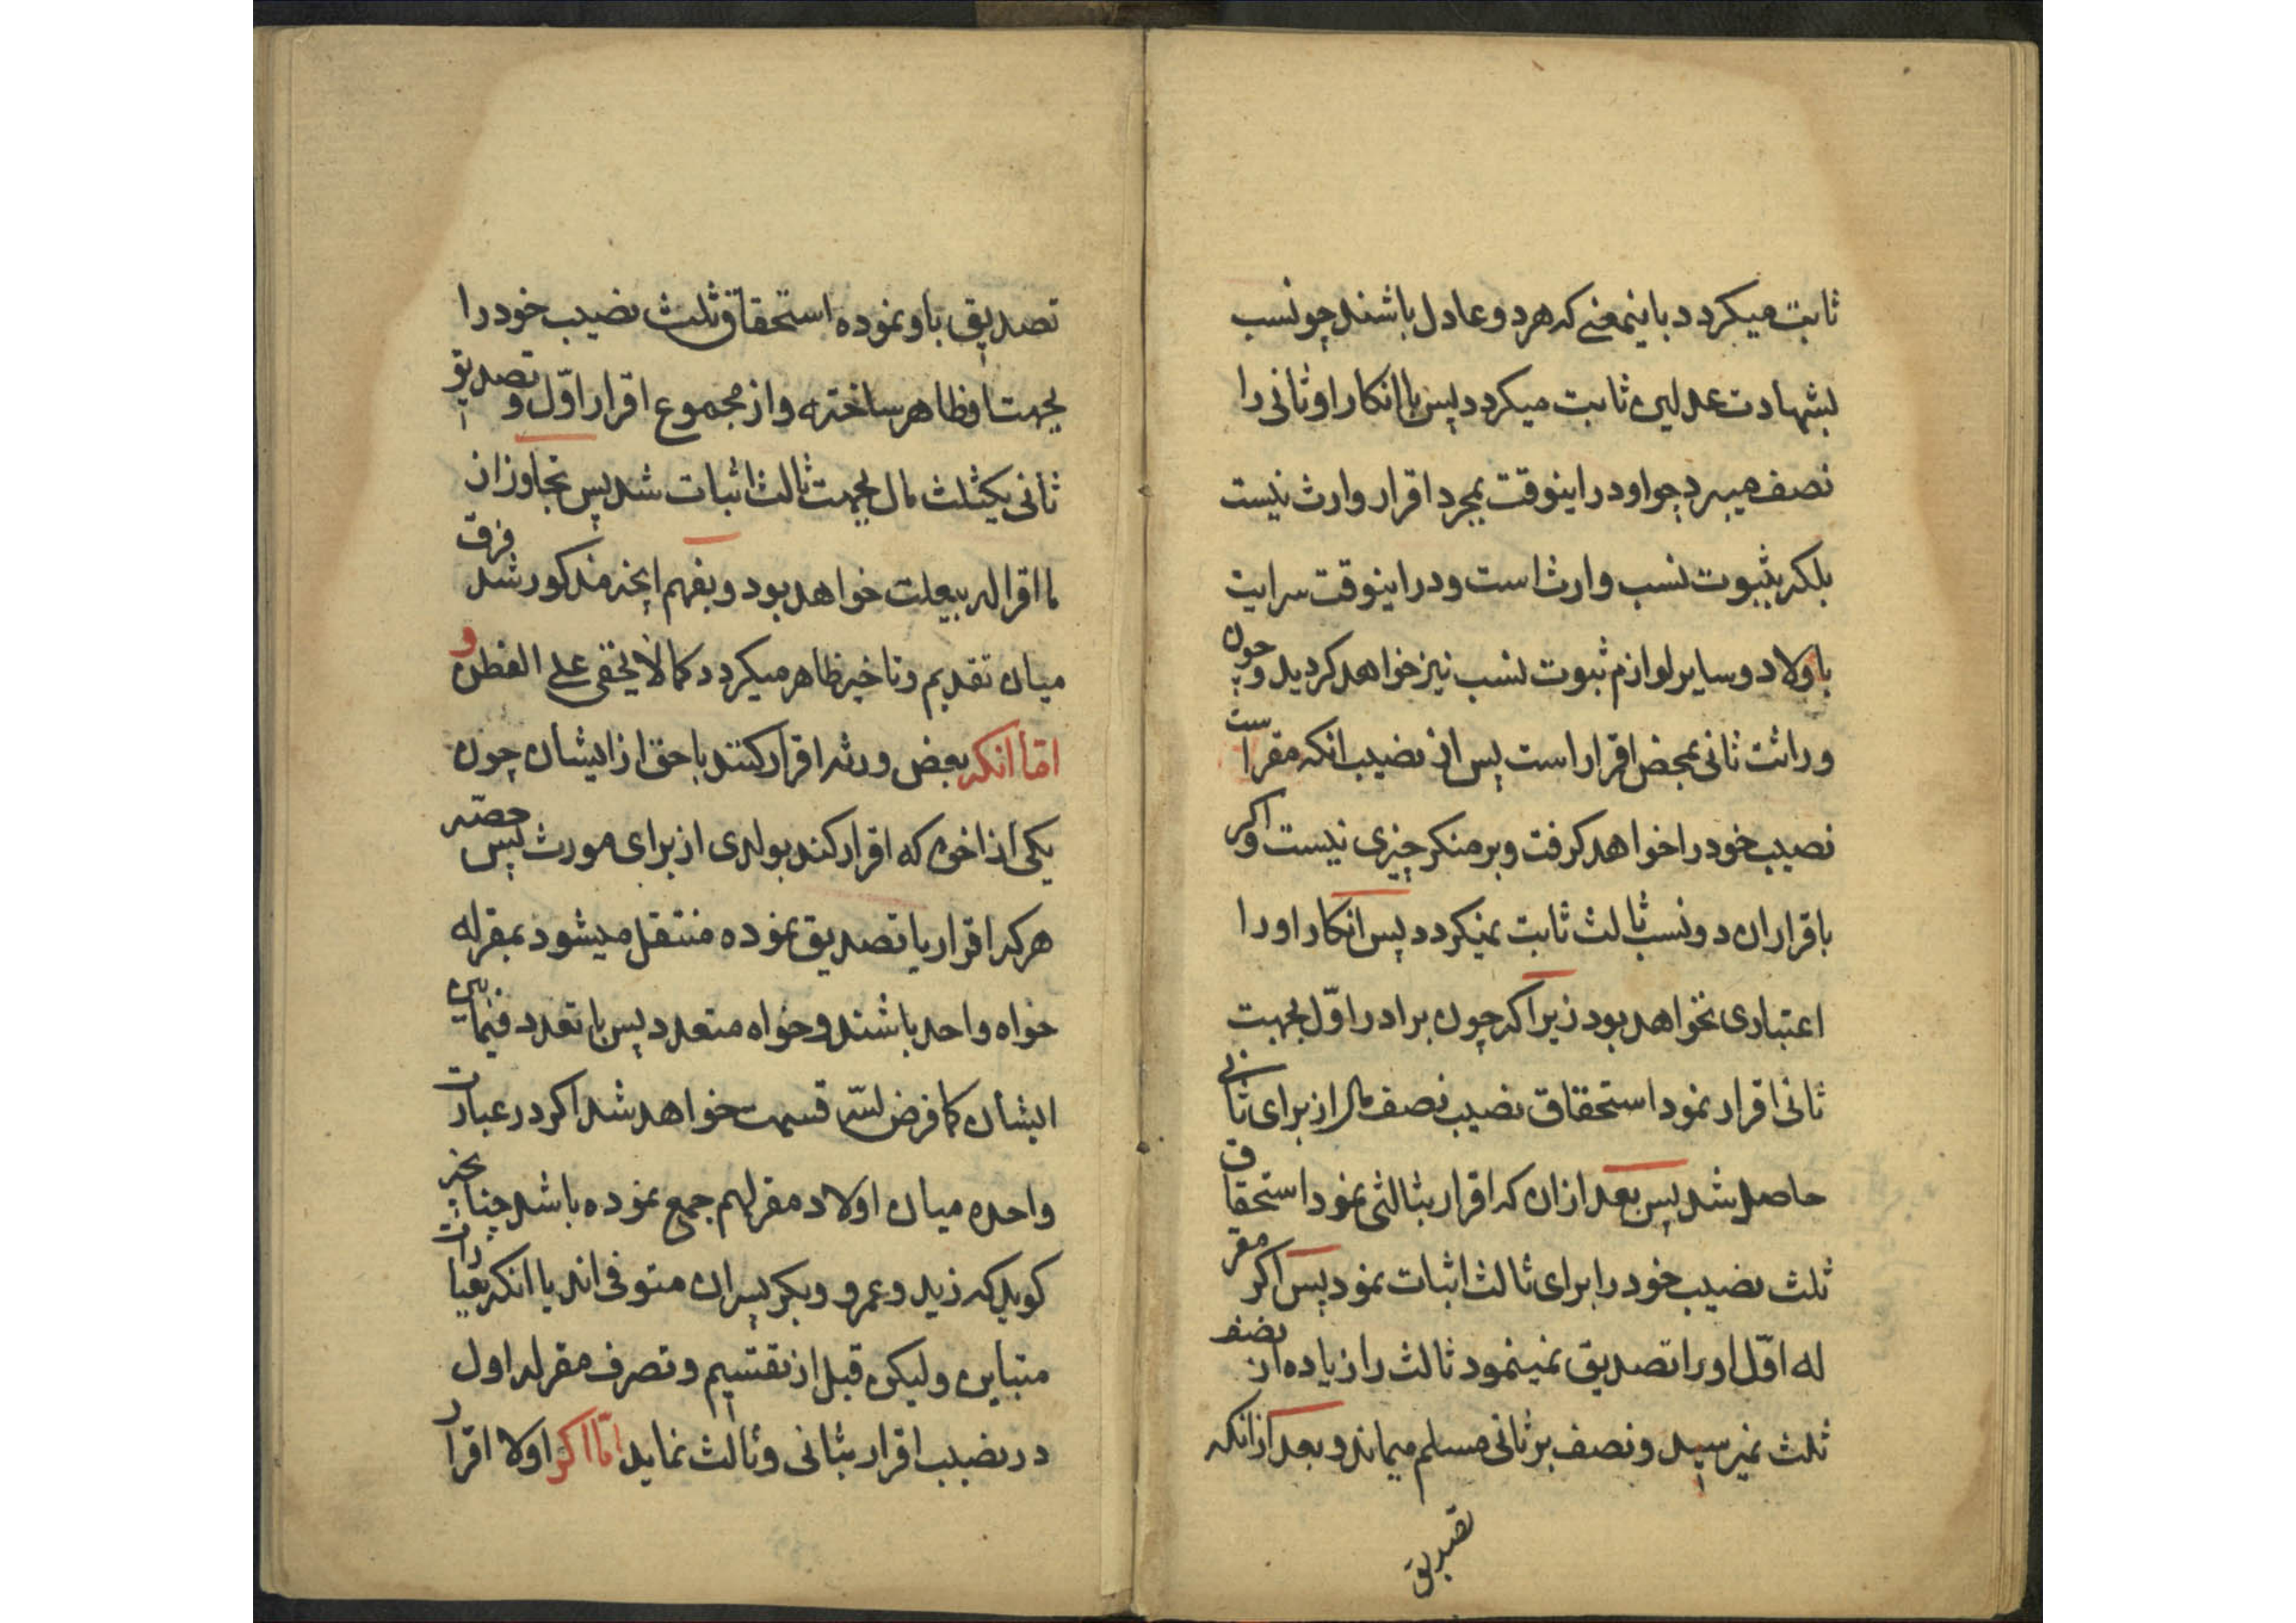 ثابت میکردد باینمعنے که هر دو عادل باشند چو نسب
بشهادت عدلین ثابت میکردد پس با انکار او ثانی را
نصف میبرد چو او در اینوقت بمجرد اقرار وارث نیست
بلکه بثبوت نسب وارث است و در اینوقت سرایت
باولاد و سایر لوازم ثبوت نسب نیز خواهد کردید و چون
وراثت ثانی بمحض اقرار است پس از نصیب انکه مقر است
نصیب خود را خواهد کرفت و بر منکر چیزی نیست و اکر
باقرار ان دو نسب ثالث ثابت نمیکردد پس انکار او را
اعتباری نخواهد بود زیرا که چون برادر اوّل بجهت
ثانی اقرار نمود استحقاق نصیب نصف مال از برای ثانی
حاصل شد پس بعد از ان که اقرار بثالثی نمود استحقاق
ثلث نصیب خود را برای ثالث اثبات نمود پس اکر مقر
له اوّل او را تصدیق نمینمود ثالث را زیاده از نصف
ثلث نمیرسید و نصف بر ثانی مسلم میماند و بعد از انکه
تصدیق
تصدیق باو نموده استحقاق ثلث نصیب خود را
بجهت او ظاهر ساخته و از مجموع اقرار اوّل و تصدیق
ثانی یکثلث مال بجهت ثالث اثبات شد پس تجاوز از
ما اقر اله بیعلت خواهد بود و بفهم انچه مذکور شد فرق
میان تقدیم و تاخیر ظاهر میکردد کما لا یخفی علے الفطن و
امّا انکه بعض ورثه اقرار کنند باحق از ایشان چون
یکی از اخوه که اقرار کند بولدی از برای مورث پس حصّه
هر که اقرار یا تصدیق نموده منتقل میشود بمقر له
خواه واحد باشند و خواه متعدد پس با تعدد فیما بین
ایشان کما فرض لله قسمت خواهد شد اکر در عبارت
واحده میان اولاد مقر لهم جمع نموده باشد چنانچه
کوید که زید و عمرو و بکر پسران متوفی اند یا انکه بعبارات
متباین ولیکن قبل از تقسیم و تصرف مقر له اول
در نصیب اقرار بثانی و ثالث نماید امّا اکر اولا اقرار